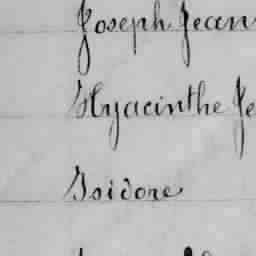 Joseph Jecen
Hyacinthe Je
Isidore